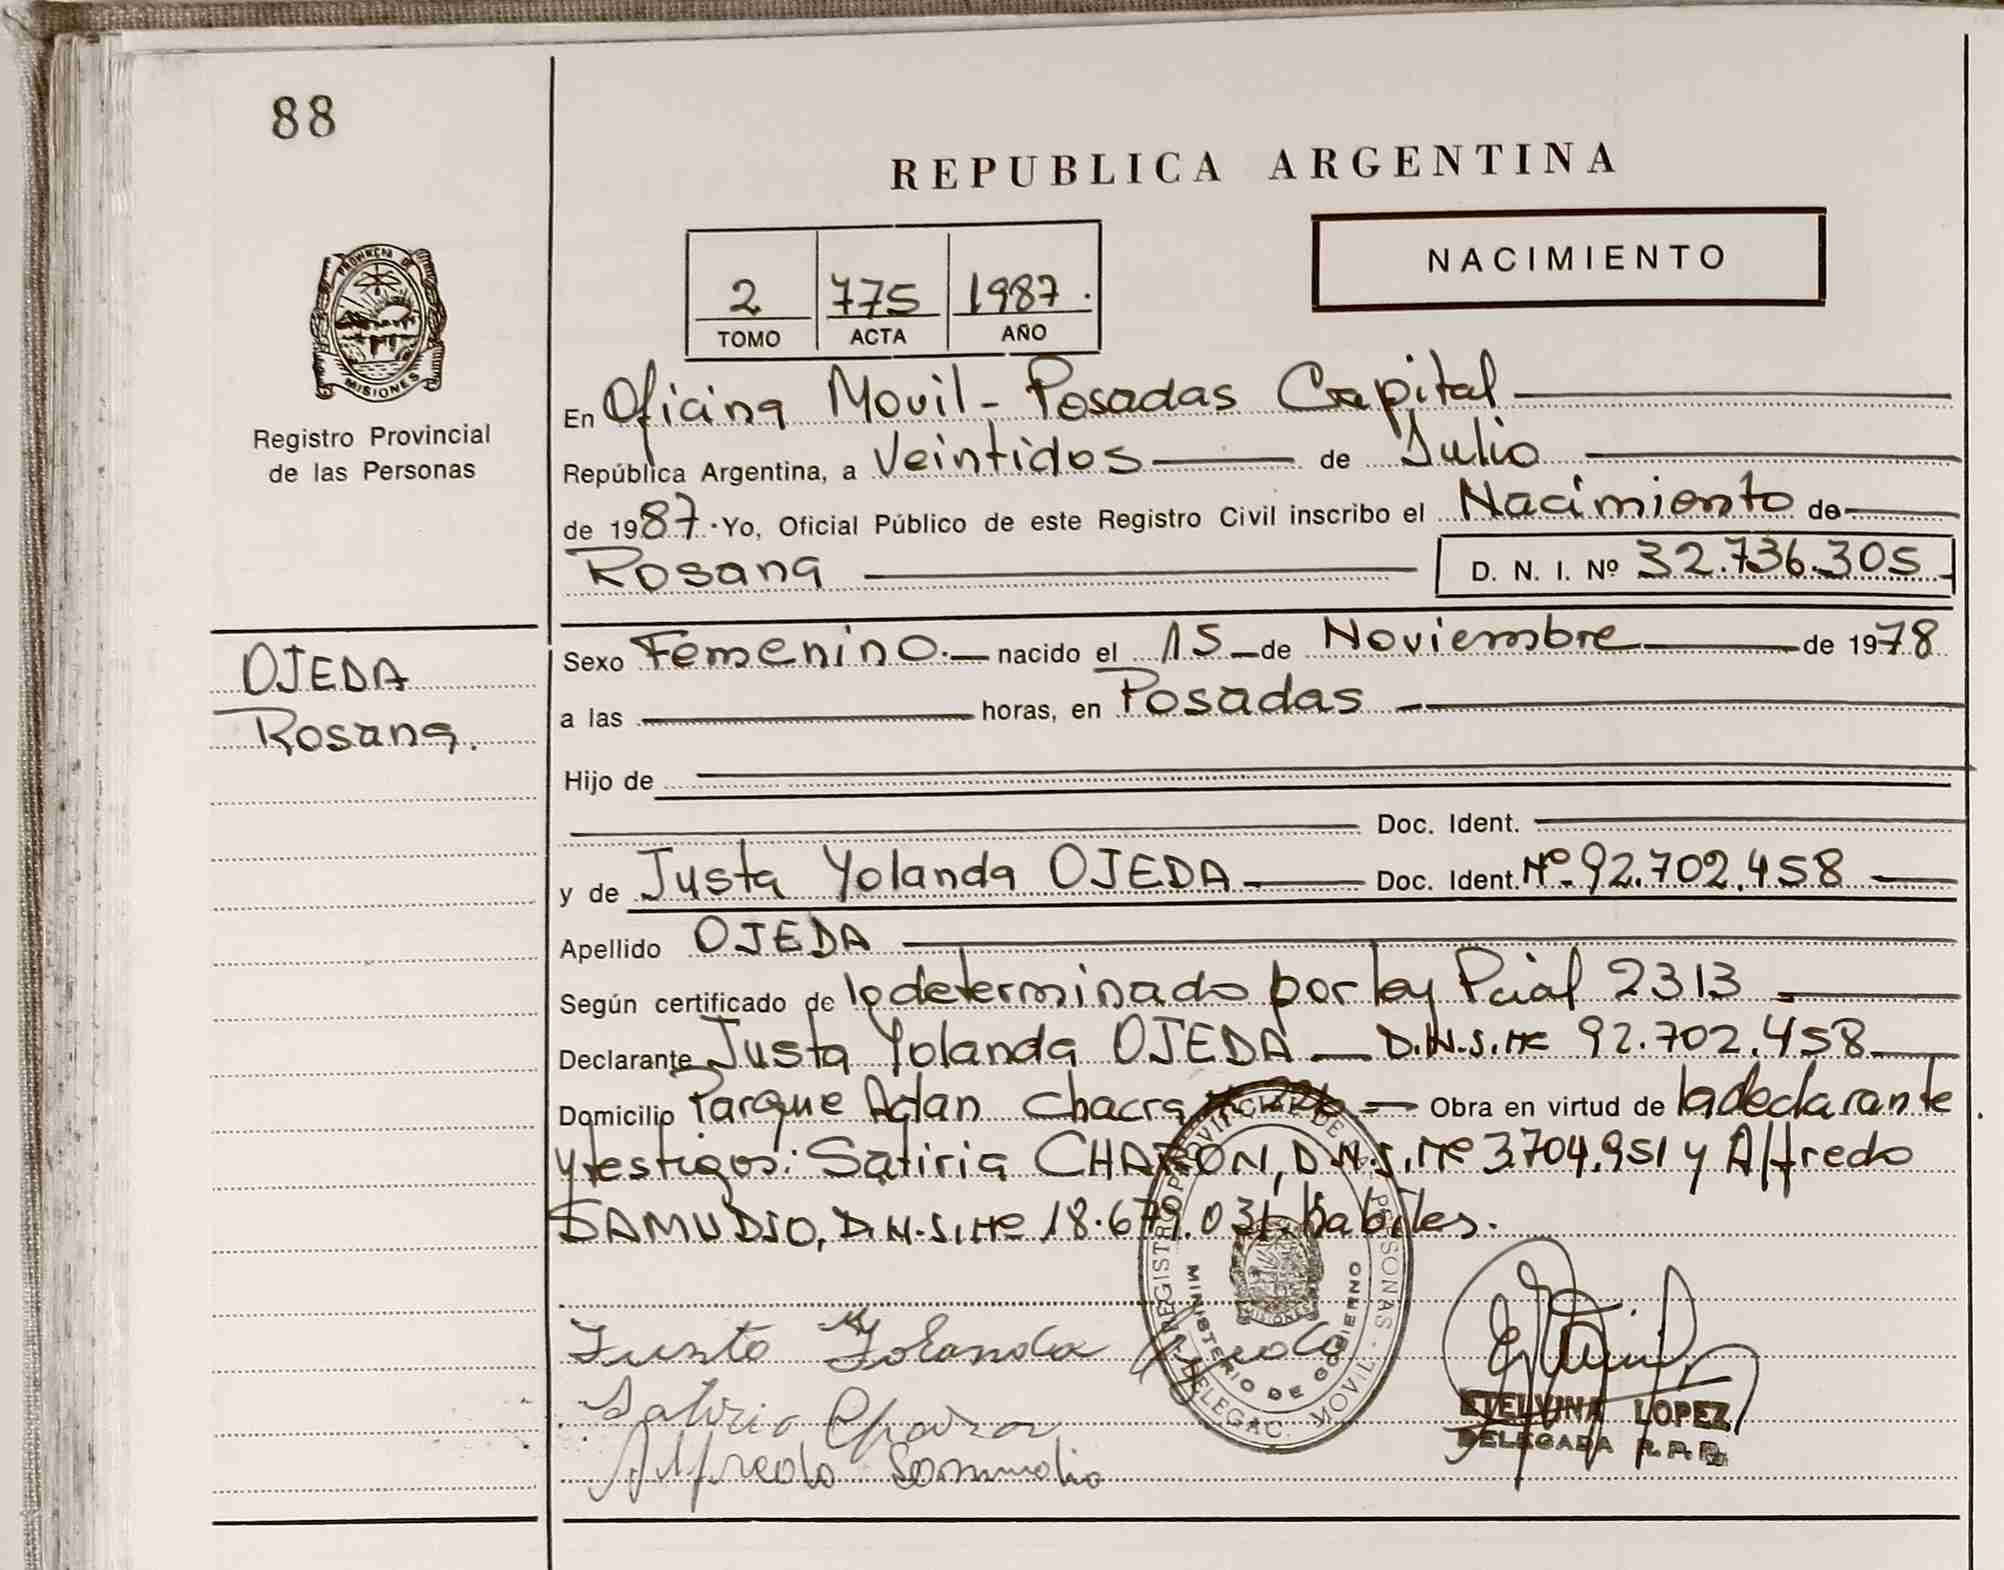 88
REPUBLICA ARGENTINA
NACIMIENTO
2 775 1987.
TOMO ACTA AÑO
PROVINCIA DE MISIONES
Registro Provincial
de las Personas
En Oficina Movil - Posadas Capital
República Argentina, a Veintidos de Julio
de 1987. Yo, Oficial Público de este Registro Civil inscribo el Nacimiento de
Rosana D. N. I. Nº 32.736.305
OJEDA
Rosana.
Sexo Femenino. nacido el 15 de Noviembre de 1978
a las horas, en Posadas
Hijo de
Doc. Ident.
y de Justa Yolanda OJEDA Doc. Ident. Nº 92.702.458
Apellido OJEDA
Según certificado de lo determinado por ley Pcial 2313
Declarante Justa Yolanda OJEDA D.N.I. Nº 92.702.458
Domicilio Parque Adan Chacra Obra en virtud de la declarante
y testigos: Satiria D.N.I. Nº 3.704.951 y Alfredo
SAMUDIO, D.N.I. Nº 18.679.031. habiles.
REGISTRO PROVINCIAL DE PERSONAS - DELEGAC. MOVIL -
MINISTERIO DE GOBIERNO
Justa Yolanda Ojeda
Alfredo Sammudio
ETELVINA LOPEZ
DELEGADA R.P.P.